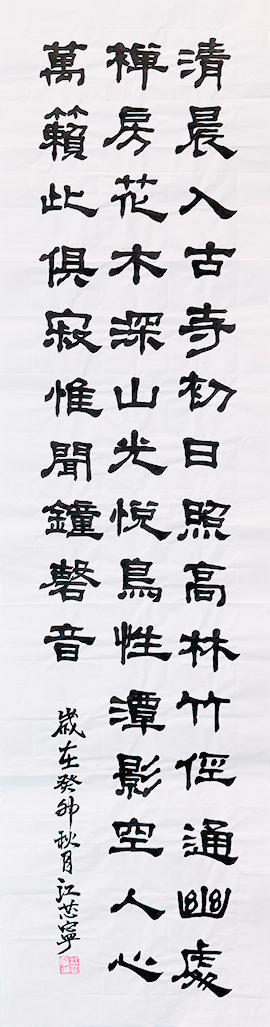 清晨入古寺初日照高林竹俓通幽處
禅房花木深山光悦鳥性潭影空人心
萬籟此俱寂惟聞鐘磬音
歲在癸卯秋月江芯寧